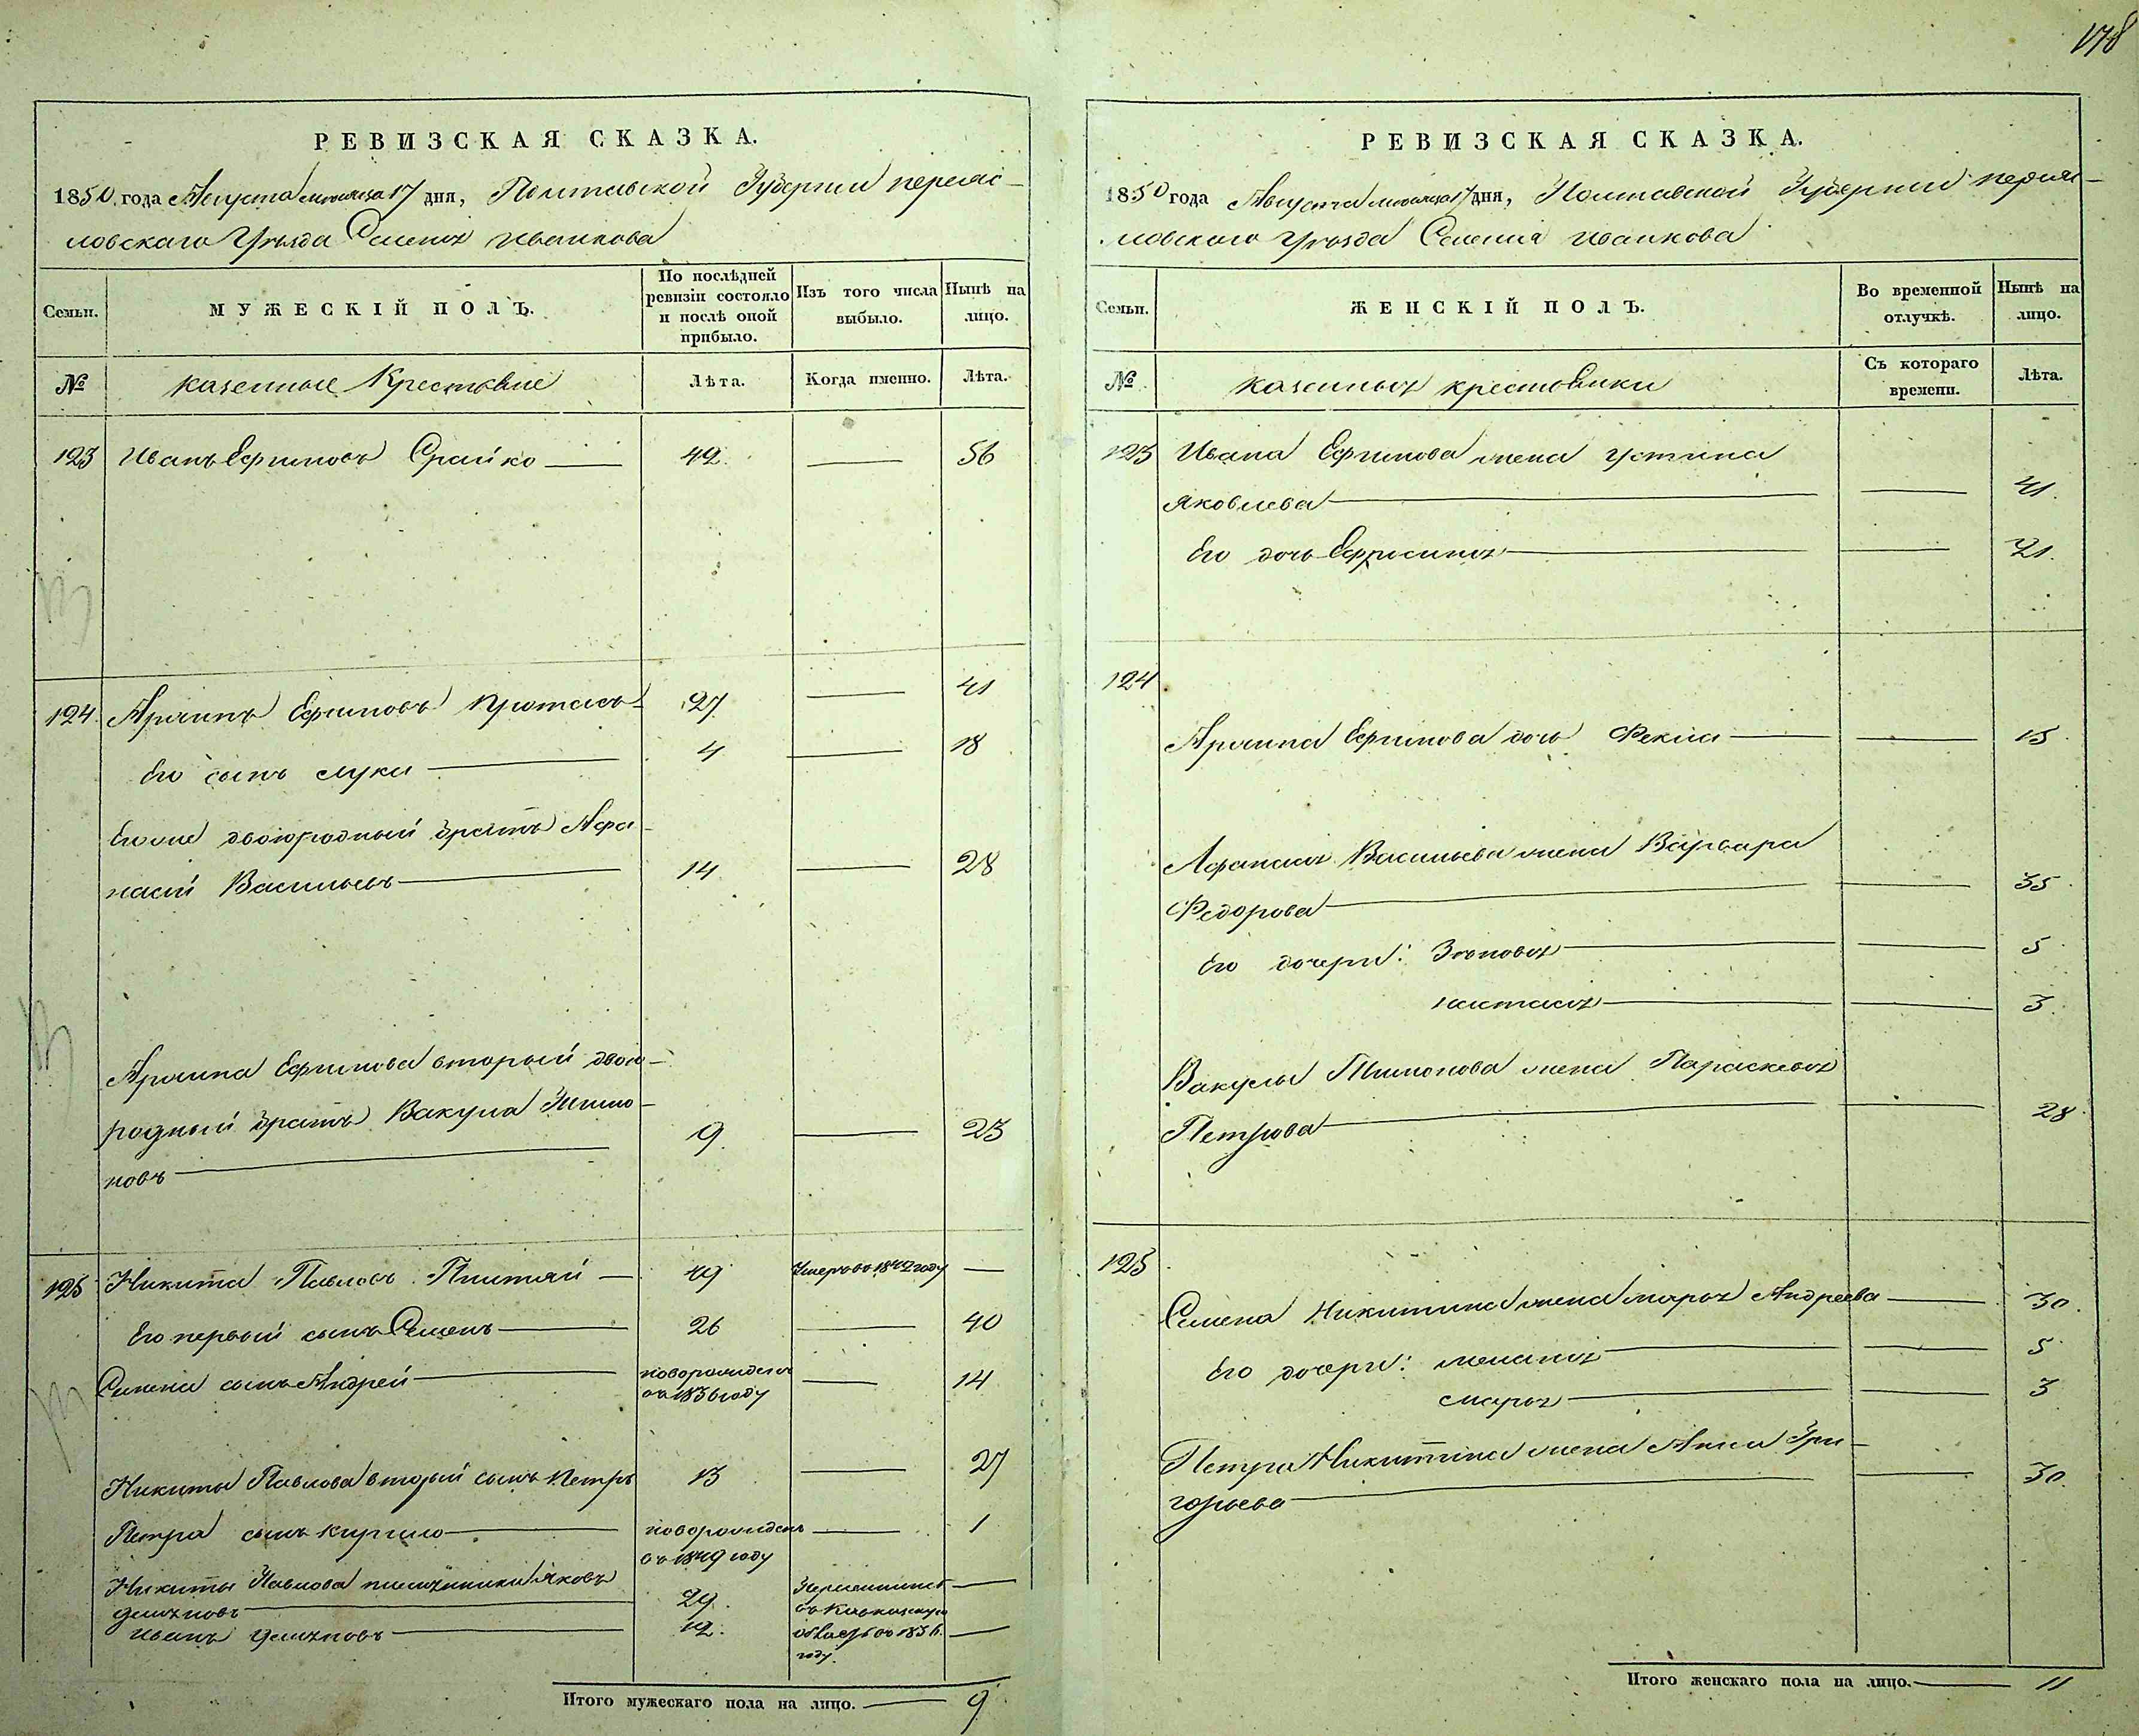 178
РЕВИЗСКАЯ СКАЗКА.
1850 года Августа месяца 17 дня, Полтавской Губернии переяс-
ловскаго Уѣзда Селенія Иванкова
Семьи.
МУЖЕСКІЙ ПОЛЪ.
По послѣдней ревизіи состояло и послѣ оной прибыло.
Изъ того числа выбыло.
Нынѣ на лицо.
№
казенные Крестьяне
Лѣта.
Когда именно.
Лѣта.
123 Иванъ Ефимовъ 42. 56
124. Ефимовъ 27 41
Его сынъ Лука 4 18
Его же двоюродный братъ Афа-
насій Васильевъ 14 28
Ефимова вторый двою-
родный братъ Вакула Тимо-
новъ 9 23
125 Никита Павловъ 49 Умеръ въ 1842 году
Его первый сынъ Семенъ 26 40
Семена сынъ Андрей новорожденъ въ 1836 году 14
Никиты Павлова вторый сынъ Петръ 13 27
Петра сынъ Кирило новорожденъ въ 1849 году 1
Никиты Павлова племянники Яковъ
29.
Иванъ 12.
въ Кавказскую область въ 1836. году.
Итого мужескаго пола на лицо. 9
РЕВИЗСКАЯ СКАЗКА.
1850 года Августа месяца 17 дня, Полтавской Губерніи переяс-
ловскаго Уѣзда Селенія Иванкова
Семьи.
ЖЕНСКІЙ ПОЛЪ.
Во временной отлучкѣ.
Нынѣ на лицо.
№
казенныя крестьянки
Съ котораго времени.
Лѣта.
123 Ивана Ефимова жена Устина
Яковлева 41.
Его дочь Ефросинія 21.
124
Ефимова дочь Фекла 15.
Афанасія Васильева жена Варвара
Федорова 35.
Его дочери: Зѣновія 5
настасія 3.
Вакулы Тимонова жена Параскевія
Петрова 28.
125
Семена Никитина жена марія Андреева 30.
Его дочери: меланія 5
марія 3
Петра Никитина жена Анна Гри-
горьева 30.
Итого женскаго пола на лицо. 11